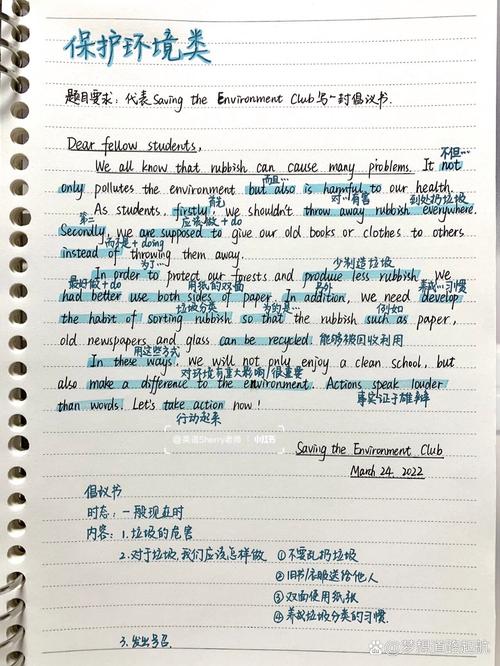 保护环境类
题目要求：代表Saving the Environment Club写一封倡议书.
Dear fellow students,
不但…
We all know that rubbish can cause many problems. It not
而且… 对…有害
only pollutes the environment but also is harmful to our health.
首先 到处扔垃圾
As students, firstly, we shouldn't throw away rubbish everywhere.
第二 应该做 + do
Secondly, we are supposed to give our old books or clothes to others
而不是 + doing
instead of throwing them away.
为了… 少制造垃圾
In order to protect our forests and produce less rubbish, we
最好做 + do 用纸的双面 另外 养成…习惯
had better use both sides of paper. In addition, we need develop
垃圾分类 为的是… 例如
the habit of sorting rubbish so that the rubbish such as paper,
old newspapers and glass can be recycled. 能够被回收利用
用这些方式
In these ways, we will not only enjoy a clean school, but
对环境有重大影响/很重要
also make a difference to the environment. Actions speak louder
事实胜于雄辩
than words. Let's take action now!
行动起来
@英语Sherry老师 小红书
Saving the Environment Club
March 24. 2022
倡议书
时态：一般现在时
内容：1. 垃圾的危害
2. 对于垃圾,我们应该怎样做 ①不要乱扔垃圾
②旧书/衣服送给他人
③双面使用纸张
④养成垃圾分类的习惯.
3. 发出号召.
梦想道路起航